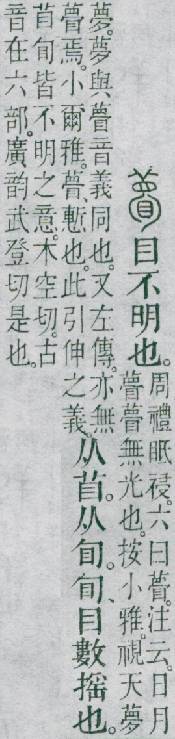 瞢目不明也。
周禮眡祲。六曰瞢。注云。日月
瞢瞢無光也。按小雅。視天夢
夢。夢與瞢音義同也。又左傳。亦無
瞢焉。小爾雅。瞢、慙也。此引伸之義。
从苜。从旬。旬、目數搖也。
苜旬皆不明之意。木空切。古
音在六部。廣韵武登切是也。